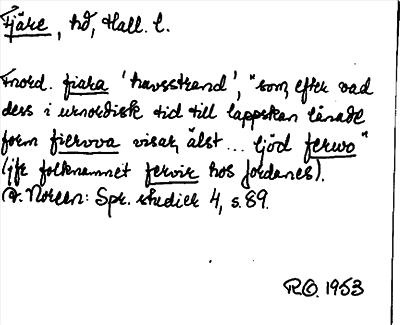 Fjäre, hd, Hall. l.
Fnord. fiara 'havsstrand', "som efter vad
dess i urnordisk tid till lappskan lånade
form fiervva visar, älst... ljöd ferwo"
(jfr folknamnet fervir hos Jordanes).
A. Noreen: Spr. studier 4, s. 89.
R.O. 1953